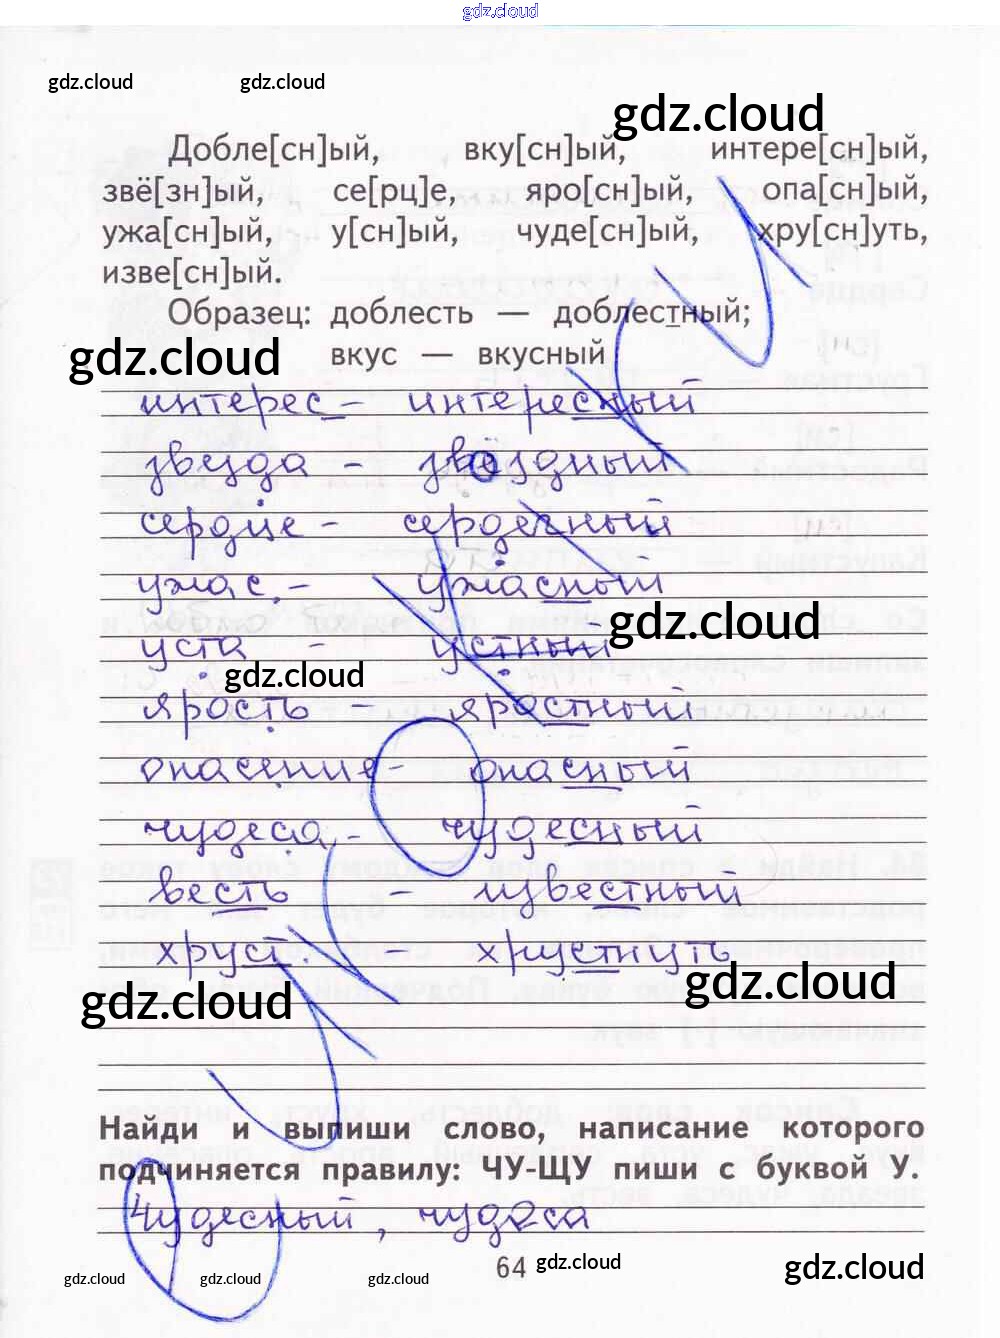 gdz.cloud
gdz.cloud gdz.cloud
gdz.cloud
Добле[сн]ый, вку[сн]ый, интере[сн]ый,
звё[зн]ый, се[рц]е, яро[сн]ый, опа[сн]ый,
ужа[сн]ый, у[сн]ый, чуде[сн]ый, хру[сн]уть,
изве[сн]ый.
Образец: доблесть — доблестный;
gdz.cloud
вкус — вкусный
интерес – интересный
звезда – звёздный
сердце – сердечный
ужас – ужасный
gdz.cloud
уста – устный
gdz.cloud
ярость – яростный
опасение – опасный
чудеса – чудесный
весть – известный
хруст – хрустнуть
gdz.cloud
gdz.cloud
Найди и выпиши слово, написание которого
подчиняется правилу: ЧУ-ЩУ пиши с буквой У.
Чудесный, чудеса
64
gdz.cloud
gdz.cloud
gdz.cloud gdz.cloud gdz.cloud